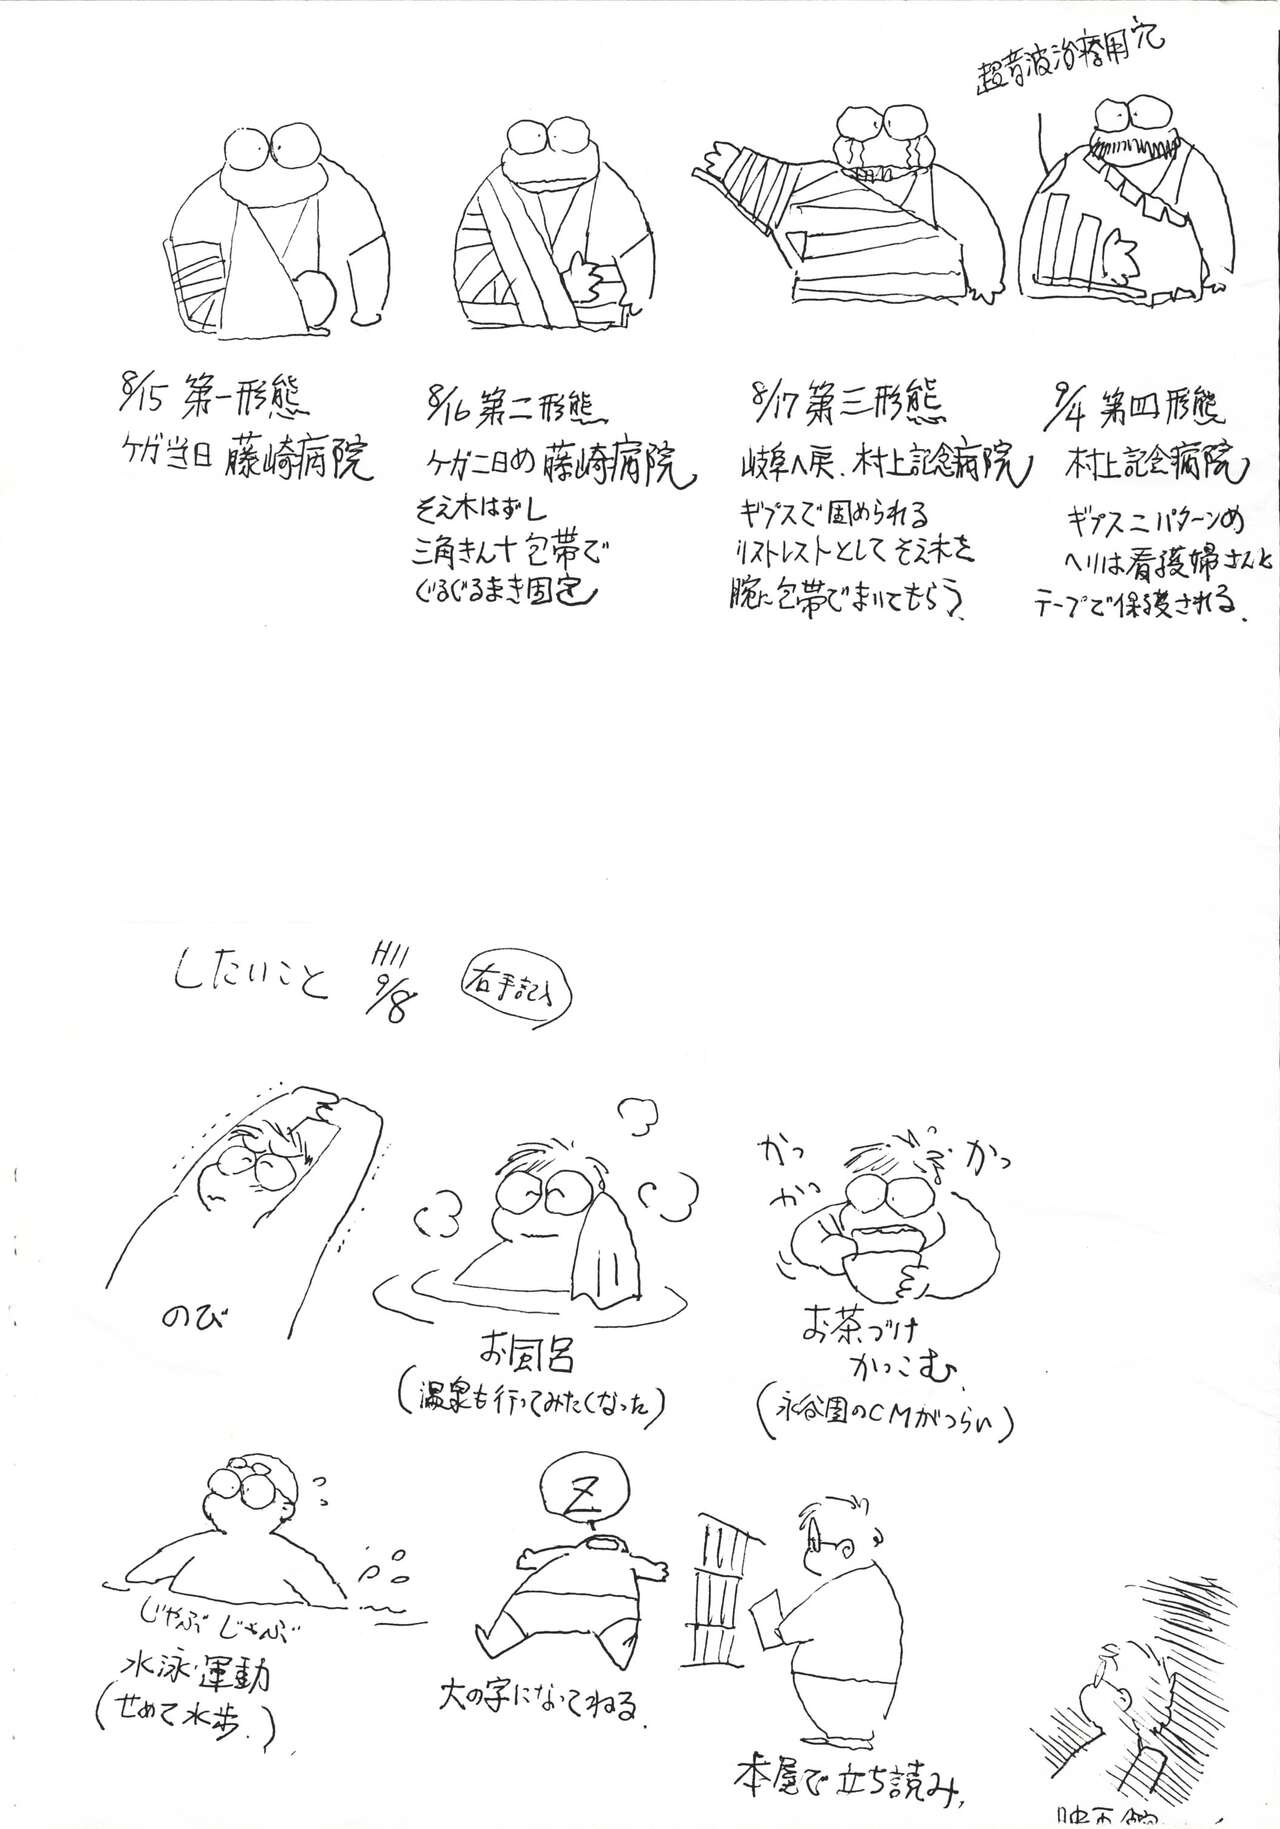 超音波治療用穴
8/15 第一形態
ケガ当日 藤崎病院
8/16 第二形態
ケガ二日め 藤崎病院
そえ木はずし
三角きん十包帯で
ぐるぐるまき固定
8/17 第三形態
岐阜へ戻、村上記念病院
ギプスで固められる
リストレストとしてそえ木を
腕に包帯でまいてもらう。
9/4 第四形態
村上記念病院
ギプス二パターンめ
ヘリは看護婦さんに
テープで保護される.
したいこと H11 9/8
右手記
のび
お風呂
(温泉も行ってみたくなった)
かっ かっ かっ
お茶づけ
かっこむ.
(永谷園のCMがつらい)
じゃぶじゃぶ
水泳・運動
(せめて水歩.)
Z
大の字になってねる.
本屋で立ち読み,
映画館